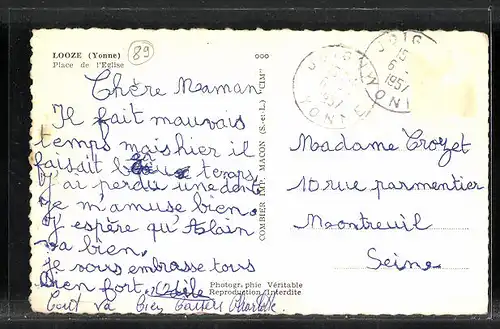 LOOZE (Yonne)
Place de l'Eglise
89
Chère Maman
Il fait mauvais
temps mais hier il
faisait beau temps,
j'ai perdu une dent
Je m'amuse bien.
J'espère qu'Alain
va bien,
je vous embrasse tous
bien fort.
Tout va bien Baisers Charlotte.
COMBIER IMP. MACON (S.-et-L.) "CIM"
Photographie Véritable
Reproduction Interdite
JOIGNY
YONNE
1957
JOIG
15
6
1957
YONNE
Madame Crozet
10 rue parmentier
Montreuil
Seine